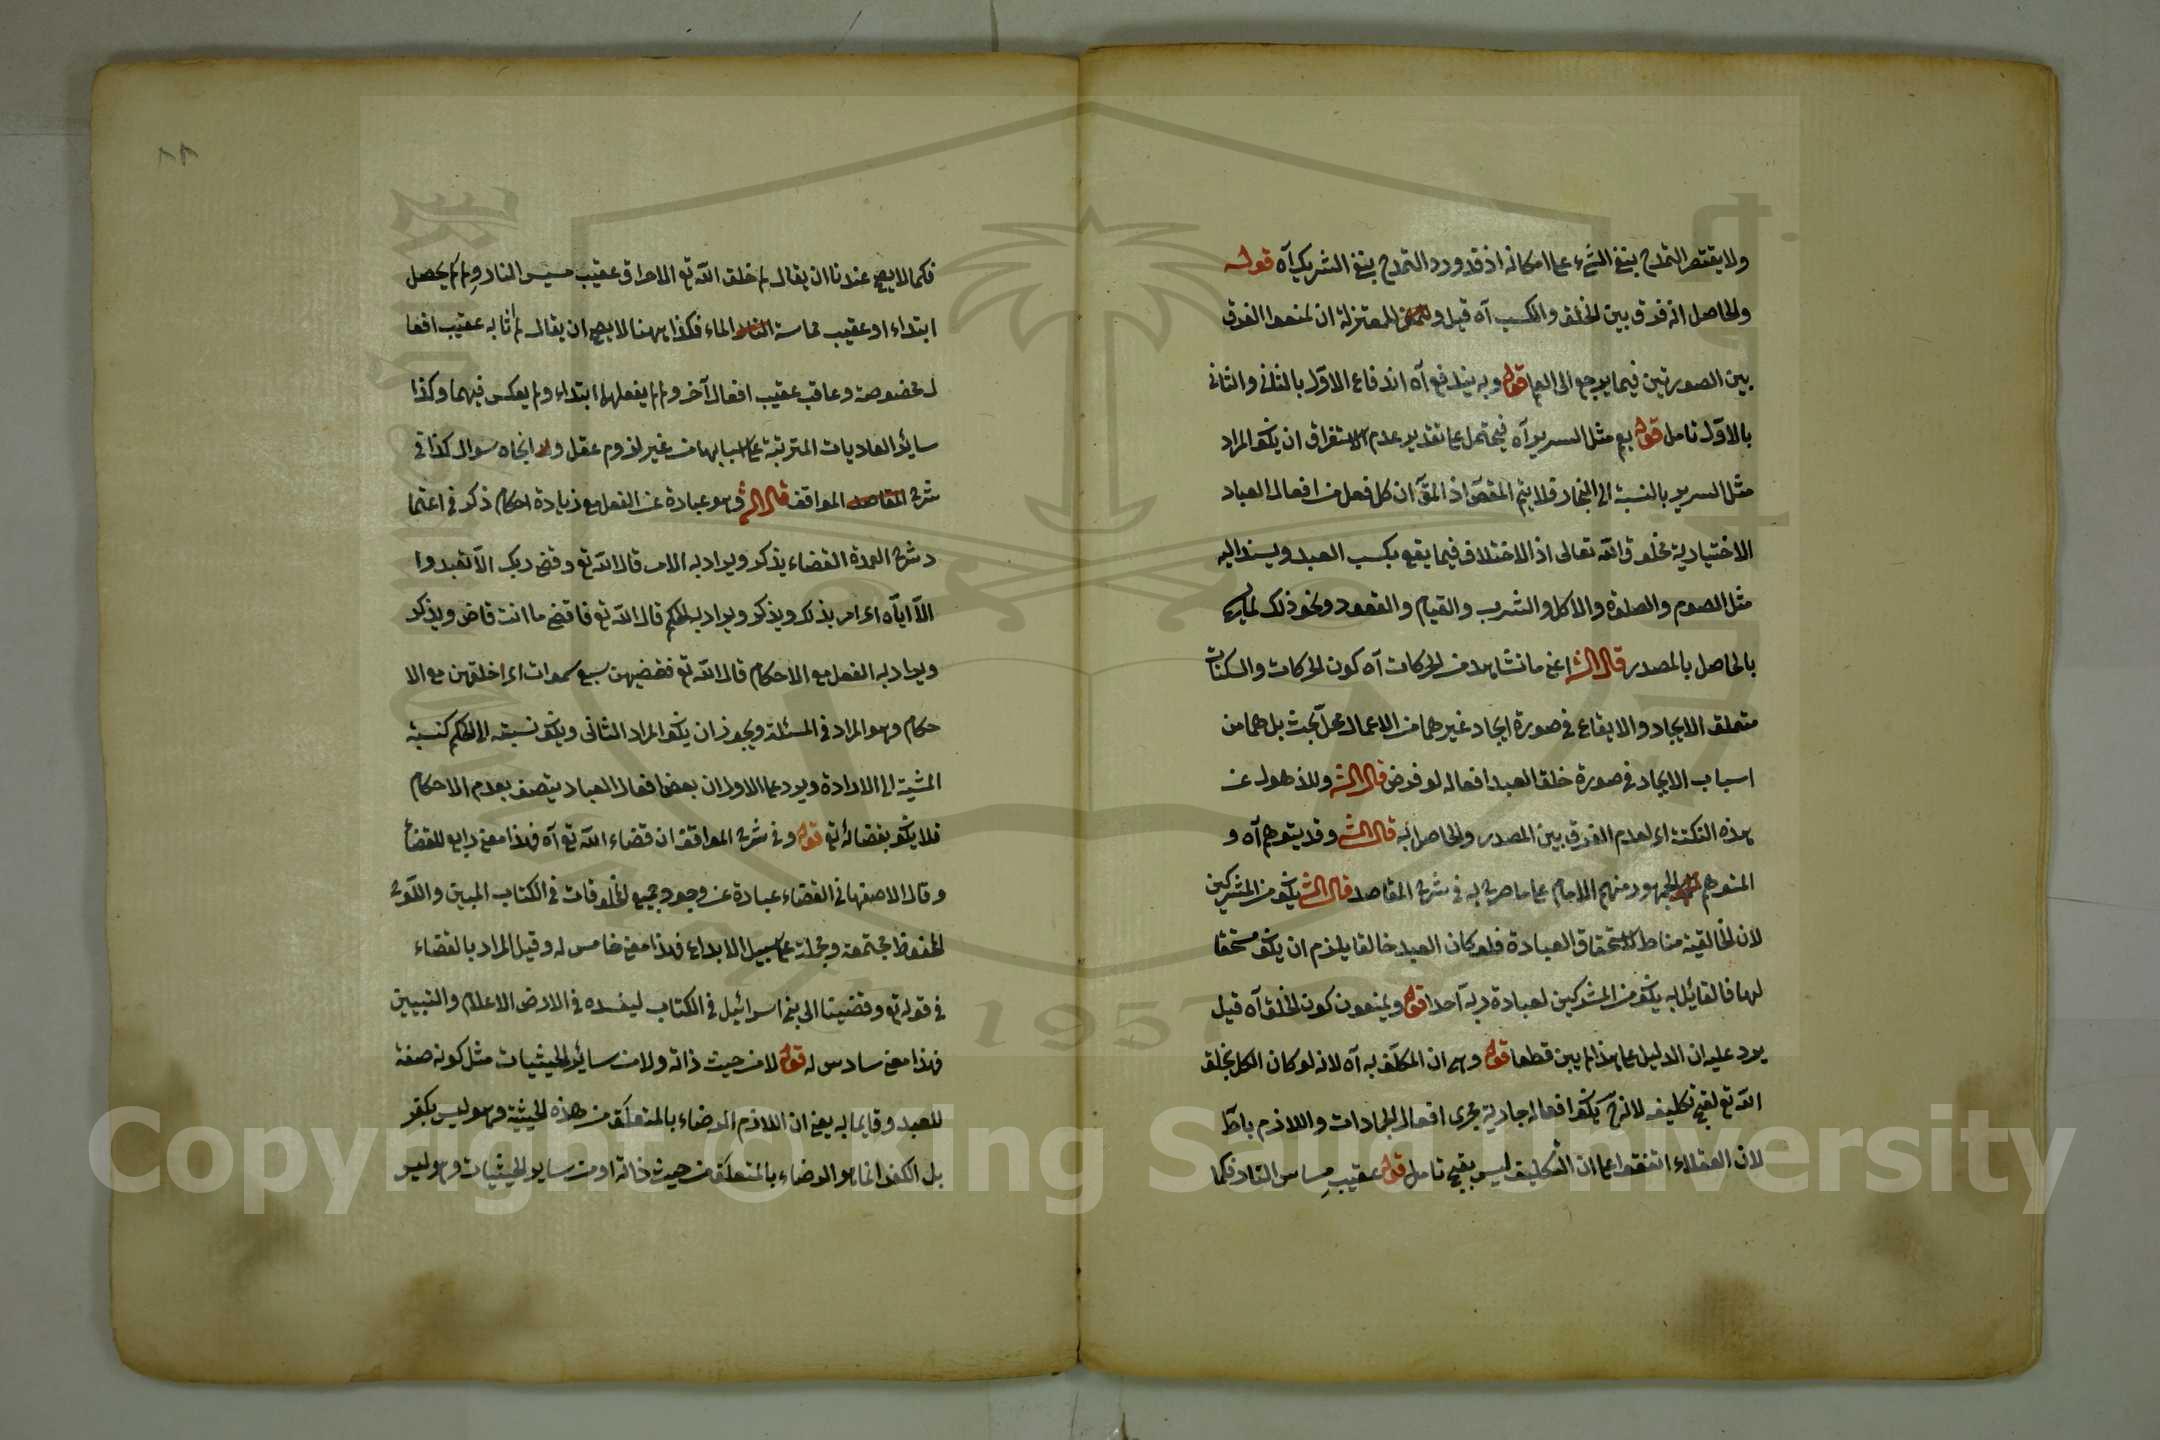 ولا يقتصر التمدح بنفي الشيء على امكانه اذ قد ورد التمدح بنفي الشريك آه قوله
والحاصل انه فرق بين الخلق والكسب آه قيل المعتزلة ان لمنعوا الفرق
بين الصورتين فيما يرجع الى العلم قوله وبه يندفع آه اندفاع الاول بالثاني والثاني
بالاول تامل قوله مثل السرير آه فيحتمل على تقدير عدم الاستغراق ان يكون المراد
مثل السرير بالنسبة الى النجار فلا يتم المقصود اذ المقصود ان كل فعل من افعال العباد
الاختيارية مخلوق الله تعالى اذ الاختلاف فيما يقع بكسب العبد ويسند اليه
مثل الصوم والصلوة والاكل والشرب والقيام والقعود ونحو ذلك
بالحاصل بالمصدر قال الش اعني ما نشاهد من الحركات آه كون الحركات والسكنات
متعلق الايجاد والايقاع في صورة ايجاد غيرهما من الاعمال محل بحث بل هما من
اسباب الايجاد في صورة خلق العبد افعاله لو فرض قال الش وللذهول عن
هذه النكتة اي لعدم الفرق بين المصدر والحاصل به قال الش وقد يتوهم آه و
المتوهم الجمهور منهم الامام على ما صرح به في شرح المقاصد قال الش يكون من المشركين
لان الخالقية مناط لاستحقاق العبادة فلو كان العبد خالقا يلزم ان يكون مستحقا
لها فالقائل به يكون من المشركين لعبادة ربه آحدا قوله ويمنعون كون الخلق آه قيل
يرد عليه ان الدليل على هذا لم يبين قطعا قوله وهي ان المكلف به آه لانه لو كان الكل بخلق
الله تع لقبح تكليفه لانه ح يكون افعاله جارية مجرى افعال الجمادات واللازم باطل
لان العقلاء اتفقوا على ان التكليف ليس بقبيح تامل قوله عقيب مساس النار فكما
٨٨
فكما لا يصح عندنا ان يقال لم خلق الله تع الاحراق عقيب مسيس النار ولم لم يحصل
ابتداء او عقيب مماسة النار الماء فكذا ههنا لا يصح ان يقال لم اثابه عقيب افعا
ل مخصوصة وعاقب عقيب افعال آخر ولم لم يفعلهما ابتداء ولم يعكس فيهما وكذا
سائر العاديات المترتبة على اسبابها من غير لزوم عقل ولا اتجاه سوال كذا في
شرح المقاصد المواقف قال الش وهو عبارة عن الفعل مع زيادة احكام ذكر في اعتما
د شرح العمدة القضاء يذكر ويراد به الامر قال الله تع وقضى ربك الا تعبدوا
الا اياه اي امر بذلك ويذكر ويراد به الحكم قال الله تع فاقض ما انت قاض ويذكر
ويراد به الفعل مع الاحكام قال الله تع فقضيهن سبع سموات اي خلقهن مع الا
حكام وهو المراد في المسئلة ويجوز ان يكون المراد الثاني ويكون نسبته الى الحكم كنسبة
المشية الى الارادة ويرد على الاول ان بعض افعال العباد يتصف بعدم الاحكام
فلا يكون بقضائه تع قوله وفي شرح المواقف ان قضاء الله تع آه فهذا معنى رابع للقضا
وقال الاصفهاني القضاء عبارة عن وجود جميع المخلوقات في الكتاب المبين واللوح
المحفوظ مجتمعة ومجملة على سبيل الابداع فهذا معنى خامس له وقيل المراد بالقضاء
في قوله تع وقضينا الى بني اسرائيل في الكتاب ليفسده في الارض الاعلام والتبيين
فهذا معنى سادس له قوله لا من حيث ذاته ولا من سائر الحيثيات مثل كونه صفة
للعبد وقايما به يعني ان اللازم الرضاء بالمتعلق من هذه الحيثية وهو ليس بكفر
بل الكفر انما هو الرضاء بالمتعلق من حيث ذاته او من ساير الحيثيات وهو ليس
Copyright © King Saud University
1957